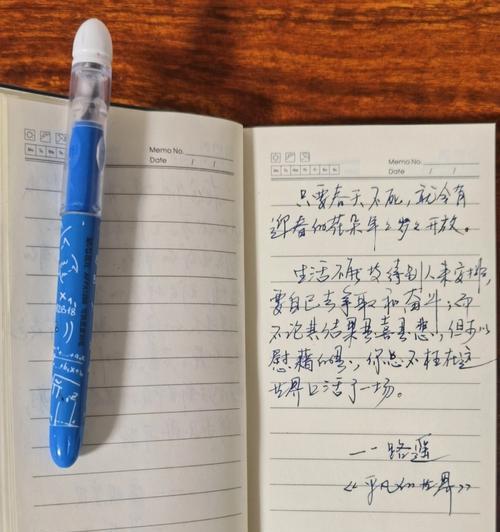 Memo No.
Date / /
Mo Tu We Th Fr Sa Su
Memo No.
Date / /
Mo Tu We Th Fr Sa Su
只要春天不死,就会有
迎春的花朵年年岁岁开放。
生活不能等待别人来安排,
要自己去争取和奋斗;而
不论其结果是喜是悲,但可以
慰藉的是,你总不枉在这
世界上活了一场。
——路遥
《平凡的世界》